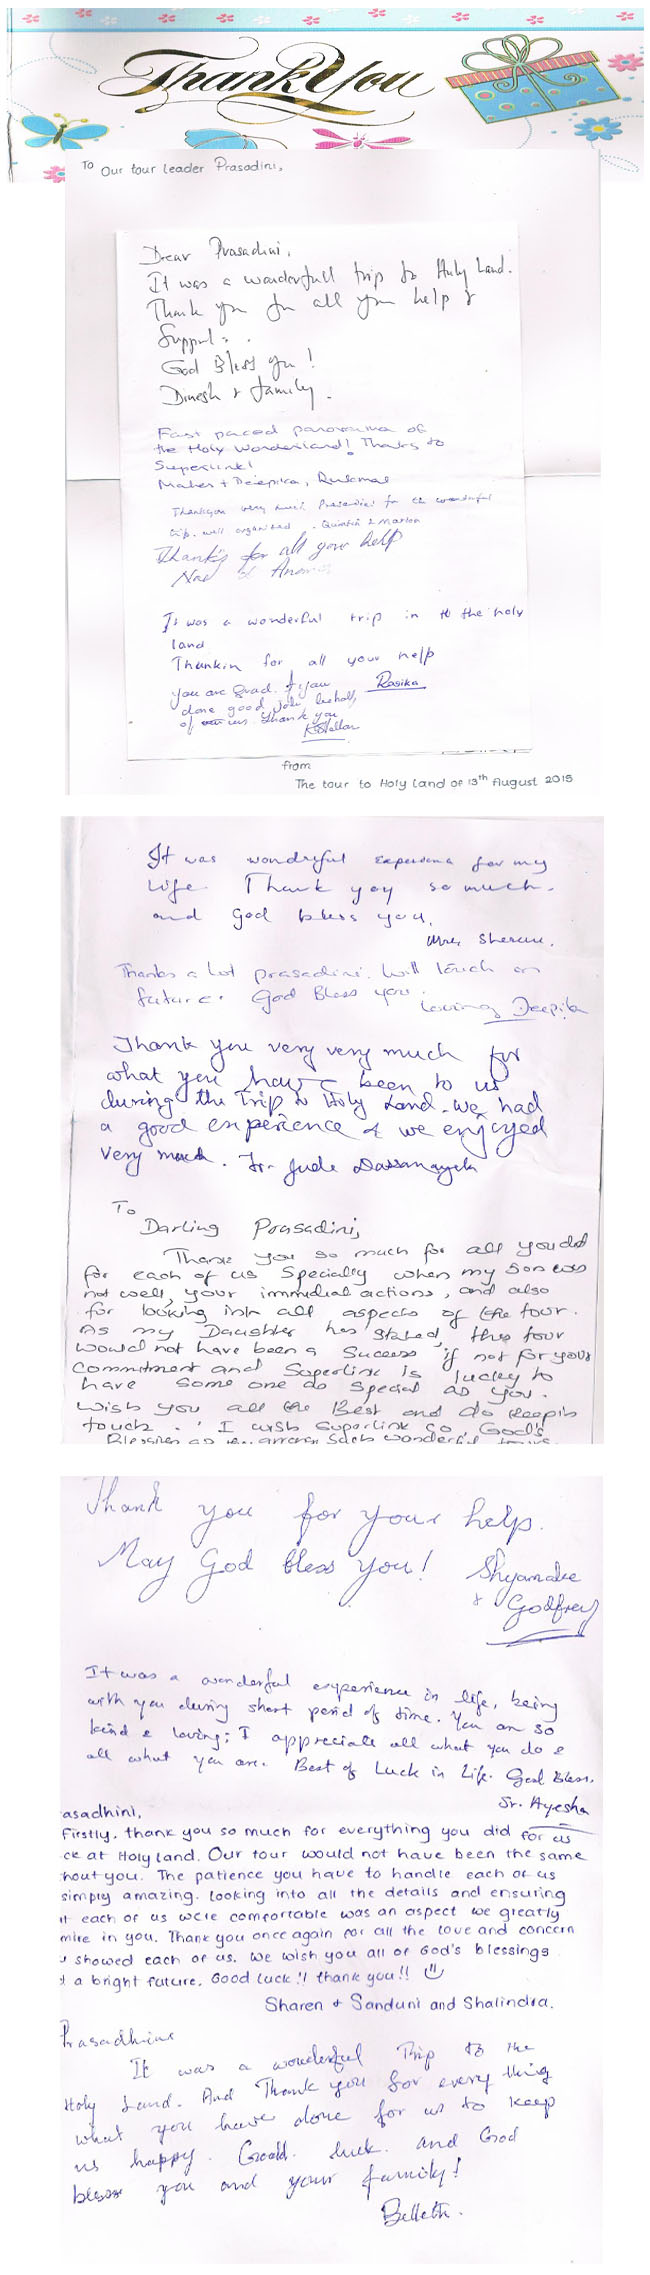 Thank You
To Our tour leader Prasadini,
Dear Prasadini,
It was a wonderfull trip to Holy Land.
Thank you for all your help &
Support..
God Bless you!
Dinesh & family.
Fast paced panorama of
the Holy Wonderland! Thanks to
Superlink!
Mahes + Deepika, Rukmal
Thankyou very much Prasadini for the wonderful
trip. well organized. Quintin & Marlon
Thank's for all your help
It was a wonderful trip in to the holy
land
Thankin for all your help
you are Grad. & you Rasika
done good job behalf
of us. thank you
from
The tour to Holy Land of 13th August 2015
It was wonderful experiena for my
Life. Thank yoy so much.
and god bless you.
Mrs. Sheren.
Thanks a lot prasadini. Will touch on
future. God Bless you.
Loving Deepika
Thank you very very much for
what you have been to us
during the Trip to Holy Land. we had
a good experience & we enjoyed
very much. Fr. Jude Dassanayak
To
Darling Prasadini,
Thank you so much for all you did
for each of us Specially when my son was
not well, your immedial actions, and also
for looking into all aspects of the tour.
As my Daughter has stated, this tour
would not have been a Success if not for your
Commitment and Superlink is lucky to
have some one as special as you.
Wish you all the Best and do keep in
touch. I wish Superlink so, God's
Blessings as they arrange such wonderful tours.
Thank you for your help.
May God bless you! Shyamalee
& Godfrey
It was a wonderful experience in life, being
with you during short period of time. You an so
kind & loving; I appreciate all what you do &
all what you are. Best of Luck in Life. God Bless.
Sr. Ayesha
asadhini,
Firstly, thank you so much for everything you did for us
ck at Holy land. Our tour would not have been the same
hout you. The patience you have to handle each of us
simply amazing. looking into all the details and ensuring
t each of us were comfortable was an aspect we greatly
mire in you. Thank you once again for all the love and concern
u showed each of us. We wish you all of God's blessings
d a bright future. Good luck!! thank you!! ☺
Sharen + Sanduni and Shalindra.
Prasadhini
It was a wonderful Trip to the
Holy Land. And Thank you for every thing
what you have done for us to keep
us happy. Goold. luck. and God
bless you and your family!
Belleth.